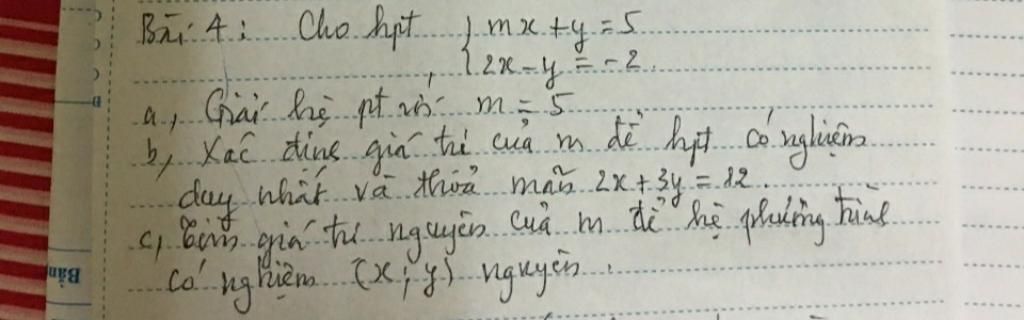 Bài 4: Cho hpt { mx + y = 5
2x - y = -2.
a, Giải hệ pt với m = 5
b, Xác định giá trị của m để hpt có nghiệm
duy nhất và thỏa mãn 2x + 3y = 12.
c, Tìm giá trị nguyên của m để hệ phương trình
có nghiệm (x; y) nguyên.